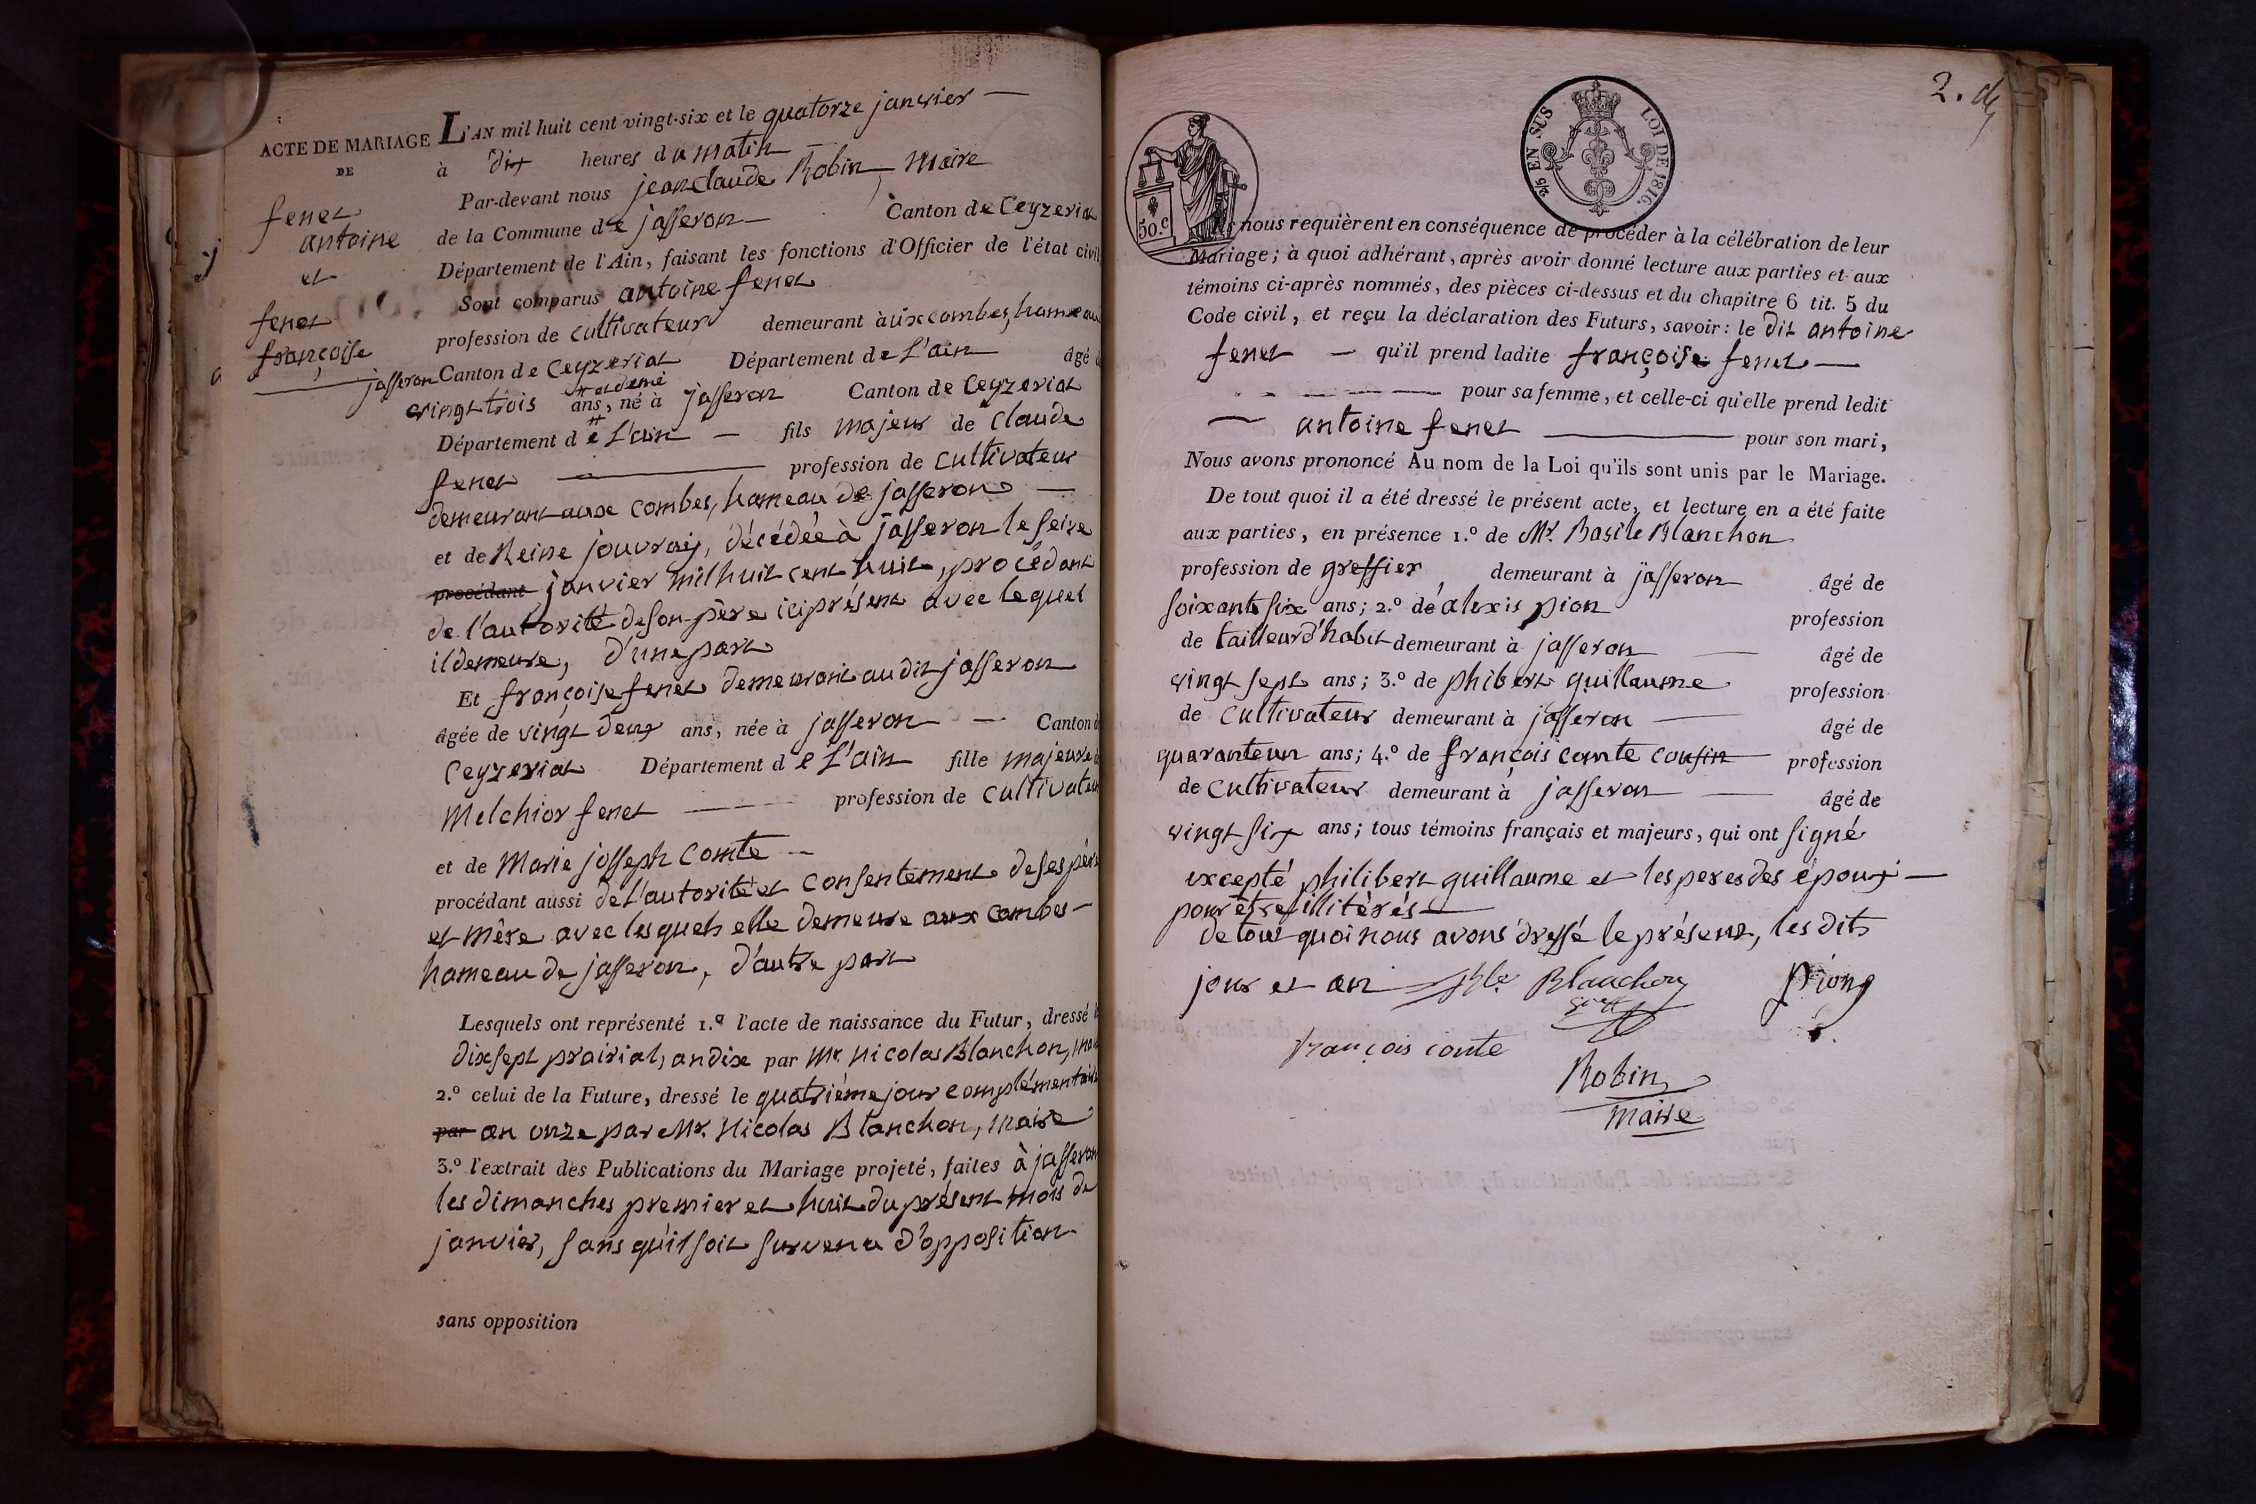 ACTE DE MARIAGE
DE
fenet
antoine
et
fenet
françoise
L'AN mil huit cent vingt-six et le quatorze janvier —
à dix heures du matin
Par-devant nous jean claude Robin, Maire
de la Commune de jasseron Canton de Ceyzeriat
Département de l'Ain, faisant les fonctions d'Officier de l'état civil
Sont comparus antoine fenet
profession de cultivateur demeurant aux combes, hameau
jasseron Canton de Ceyzeriat Département de L'ain âgé
# et demi
vingt trois ans, né à jasseron Canton de Ceyzeriat
Département de L'ain — fils majeur de Claude
fenet — profession de cultivateur
demeurant aux combes, hameau de jasseron —
et de Reine jouvray, décédée à jasseron le seize
procédant janvier mil huit cent huit, procédant
de l'autorité de son père ici présent avec lequel
il demeure, d'une part
Et françoise fenet demeurant au dit jasseron
âgée de vingt deux ans, née à jasseron — Canton
Ceyzeriat Département de L'ain fille majeure
Melchior fenet — profession de cultivateur
et de Marie josseph Comte —
procédant aussi de L'autorité et consentement de ses père
et mère avec lesquels elle demeure aux combes —
hameau de jasseron, d'autre part
Lesquels ont représenté 1.º l'acte de naissance du Futur, dressé
dix sept prairial, an dix par Mr. Nicolas Blanchon,
2.º celui de la Future, dressé le quatrième jour complémentaire
par an onze par Mr. Nicolas Blanchon, maire
3.º l'extrait des Publications du Mariage projeté, faites à jasseron
les dimanches premier et huit du présent mois de
janvier, sans qu'il soit survenu d'opposition
sans opposition
2.
50.c
2/5 EN SUS LOI DE 1816.
nous requièrent en conséquence de procéder à la célébration de leur
Mariage; à quoi adhérant, après avoir donné lecture aux parties et aux
témoins ci-après nommés, des pièces ci-dessus et du chapitre 6 tit. 5 du
Code civil, et reçu la déclaration des Futurs, savoir: le dit antoine
fenet — qu'il prend ladite françoise fenet —
— pour sa femme, et celle-ci qu'elle prend ledit
— antoine fenet — pour son mari,
Nous avons prononcé Au nom de la Loi qu'ils sont unis par le Mariage.
De tout quoi il a été dressé le présent acte, et lecture en a été faite
aux parties, en présence 1.º de Mr. Basile Blanchon
profession de greffier, demeurant à jasseron âgé de
soixante six ans; 2.º de alexis pion profession
de tailleur d'habit demeurant à jasseron — âgé de
vingt sept ans; 3.º de phibert guillaume profession
de cultivateur demeurant à jasseron — âgé de
quarante un ans; 4.º de françois comte cousin profession
de cultivateur demeurant à jasseron — âgé de
vingt six ans; tous témoins français et majeurs, qui ont signé
excepté philibert guillaume et les peres des époux —
pour être illitérés —
de tout quoi nous avons dressé le présent, les dits
jour et an Blanchon Piong
françois conte
Robin
maire